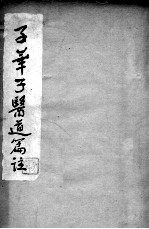 子華子醫道篇註